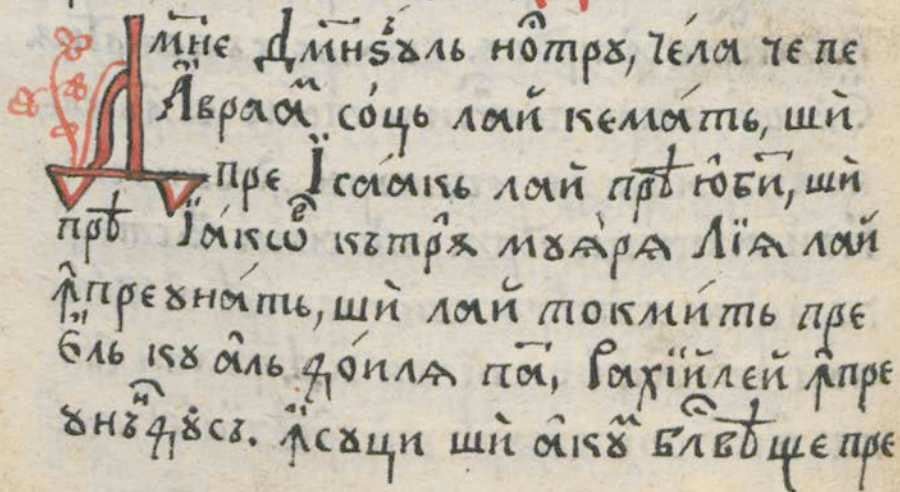 Дм҃не Дм҃нѕꙋль но̑трꙋ, че́ла че пе
Авраам со́ць лай кема́ть, шѝ
пре Їса́акь лай прѣ ю҆бѝ, шѝ
прѣ Їа́кѡв кътрѫ мꙋѧ́рѧ Лїѧ лай
ꙟ҆преꙋна́ть, шѝ лай токми́ть пре
є҆ль кꙋ а҆ль до́илѧ па, Рахїйлей ꙟ҆пре
ꙋнъндꙋсъ. ꙟ҆сꙋци шѝ а҆кꙋм бл҃вѣще пре